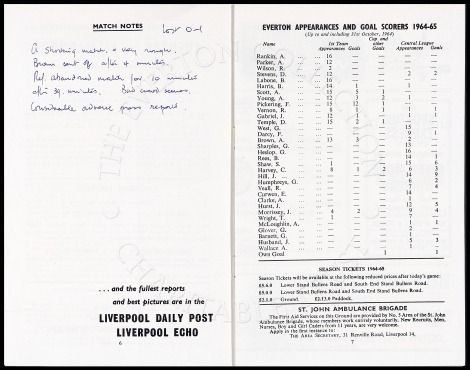 MATCH NOTES
Lost 0-1
A shocking match. & very rough.
Brown sent off after 4 minutes.
Ref. abandoned match for 10 minutes
after 39 minutes. Bad crowd scenes.
Considerable adverse press reports
... and the fullest reports
and best pictures are in the
LIVERPOOL DAILY POST
LIVERPOOL ECHO
6
EVERTON APPEARANCES AND GOAL SCORERS 1964-65
(Up to and including 31st October, 1964)
Name 1st Team Appearances Goals Cup and other Goals Central League Appearances Goals
Rankin, A. ... 16 — — — —
Parker, A. ... 12 — — — —
Wilson, R. ... 2 — — — —
Stevens, D. ... 12 — — 2 2
Labone, B. ... 16 — — — —
Harris, B. ... 14 1 — — 1
Scott, A. ... 15 5 1 — —
Young, A. ... 12 7 — 1 —
Pickering, F. ... 15 12
Vernon, R. ... 8 1 1 1
Gabriel, J. ... 12 1 —
Temple, D. ... 15 2 1 — —
West, G. ... 15
Darcy, F. ... 9 1
Brown, A. ... 13 3 2 —
Sharples, G. ... 13 —
Heslop, G. ... 16 —
Rees, B. ... 14 1
Shaw, S. ... 1 — — 15 6
Harvey, C. ... 8 1 2 6 3
Hill, J. ... 14 9
Humphreys, G. ... 6 2
Veall, R. ... 7 4
Curwen, E. ... 14 —
Clarke, A. ... 1 —
Hurst, J. ... 12 5
Morrissey, J. ... 4 2 — 9 4
Wright, T. ... 1 — — 7 —
McLoughlin, A. ... 1 1
Glover, G. ... 2 —
Barnett, G. ... 1 —
Husband, J. ... 5 3
Wallace A. ... 1
Own Goal 1 1
SEASON TICKETS 1964-65
Season Tickets will be available at the following reduced prices after today's game:
£6.6.0 Lower Stand Bullens Road and South End Stand Bullens Road.
£5.0.0 Lower Stand Bullens Road and South End Stand Bullens Road.
£2.1.0 Ground. £2.13.0 Paddock.
ST. JOHN AMBULANCE BRIGADE
The First Aid Services on this Ground are provided by No. 5 Area of the St. John
Ambulance Brigade, whose members work entirely voluntarily. New Recruits, Men,
Nurses, Boy and Girl Cadets from 11 years, are very welcome.
Apply in the first instance to:
THE AREA SECRETARY, 31 Renville Road, Liverpool 14,
7